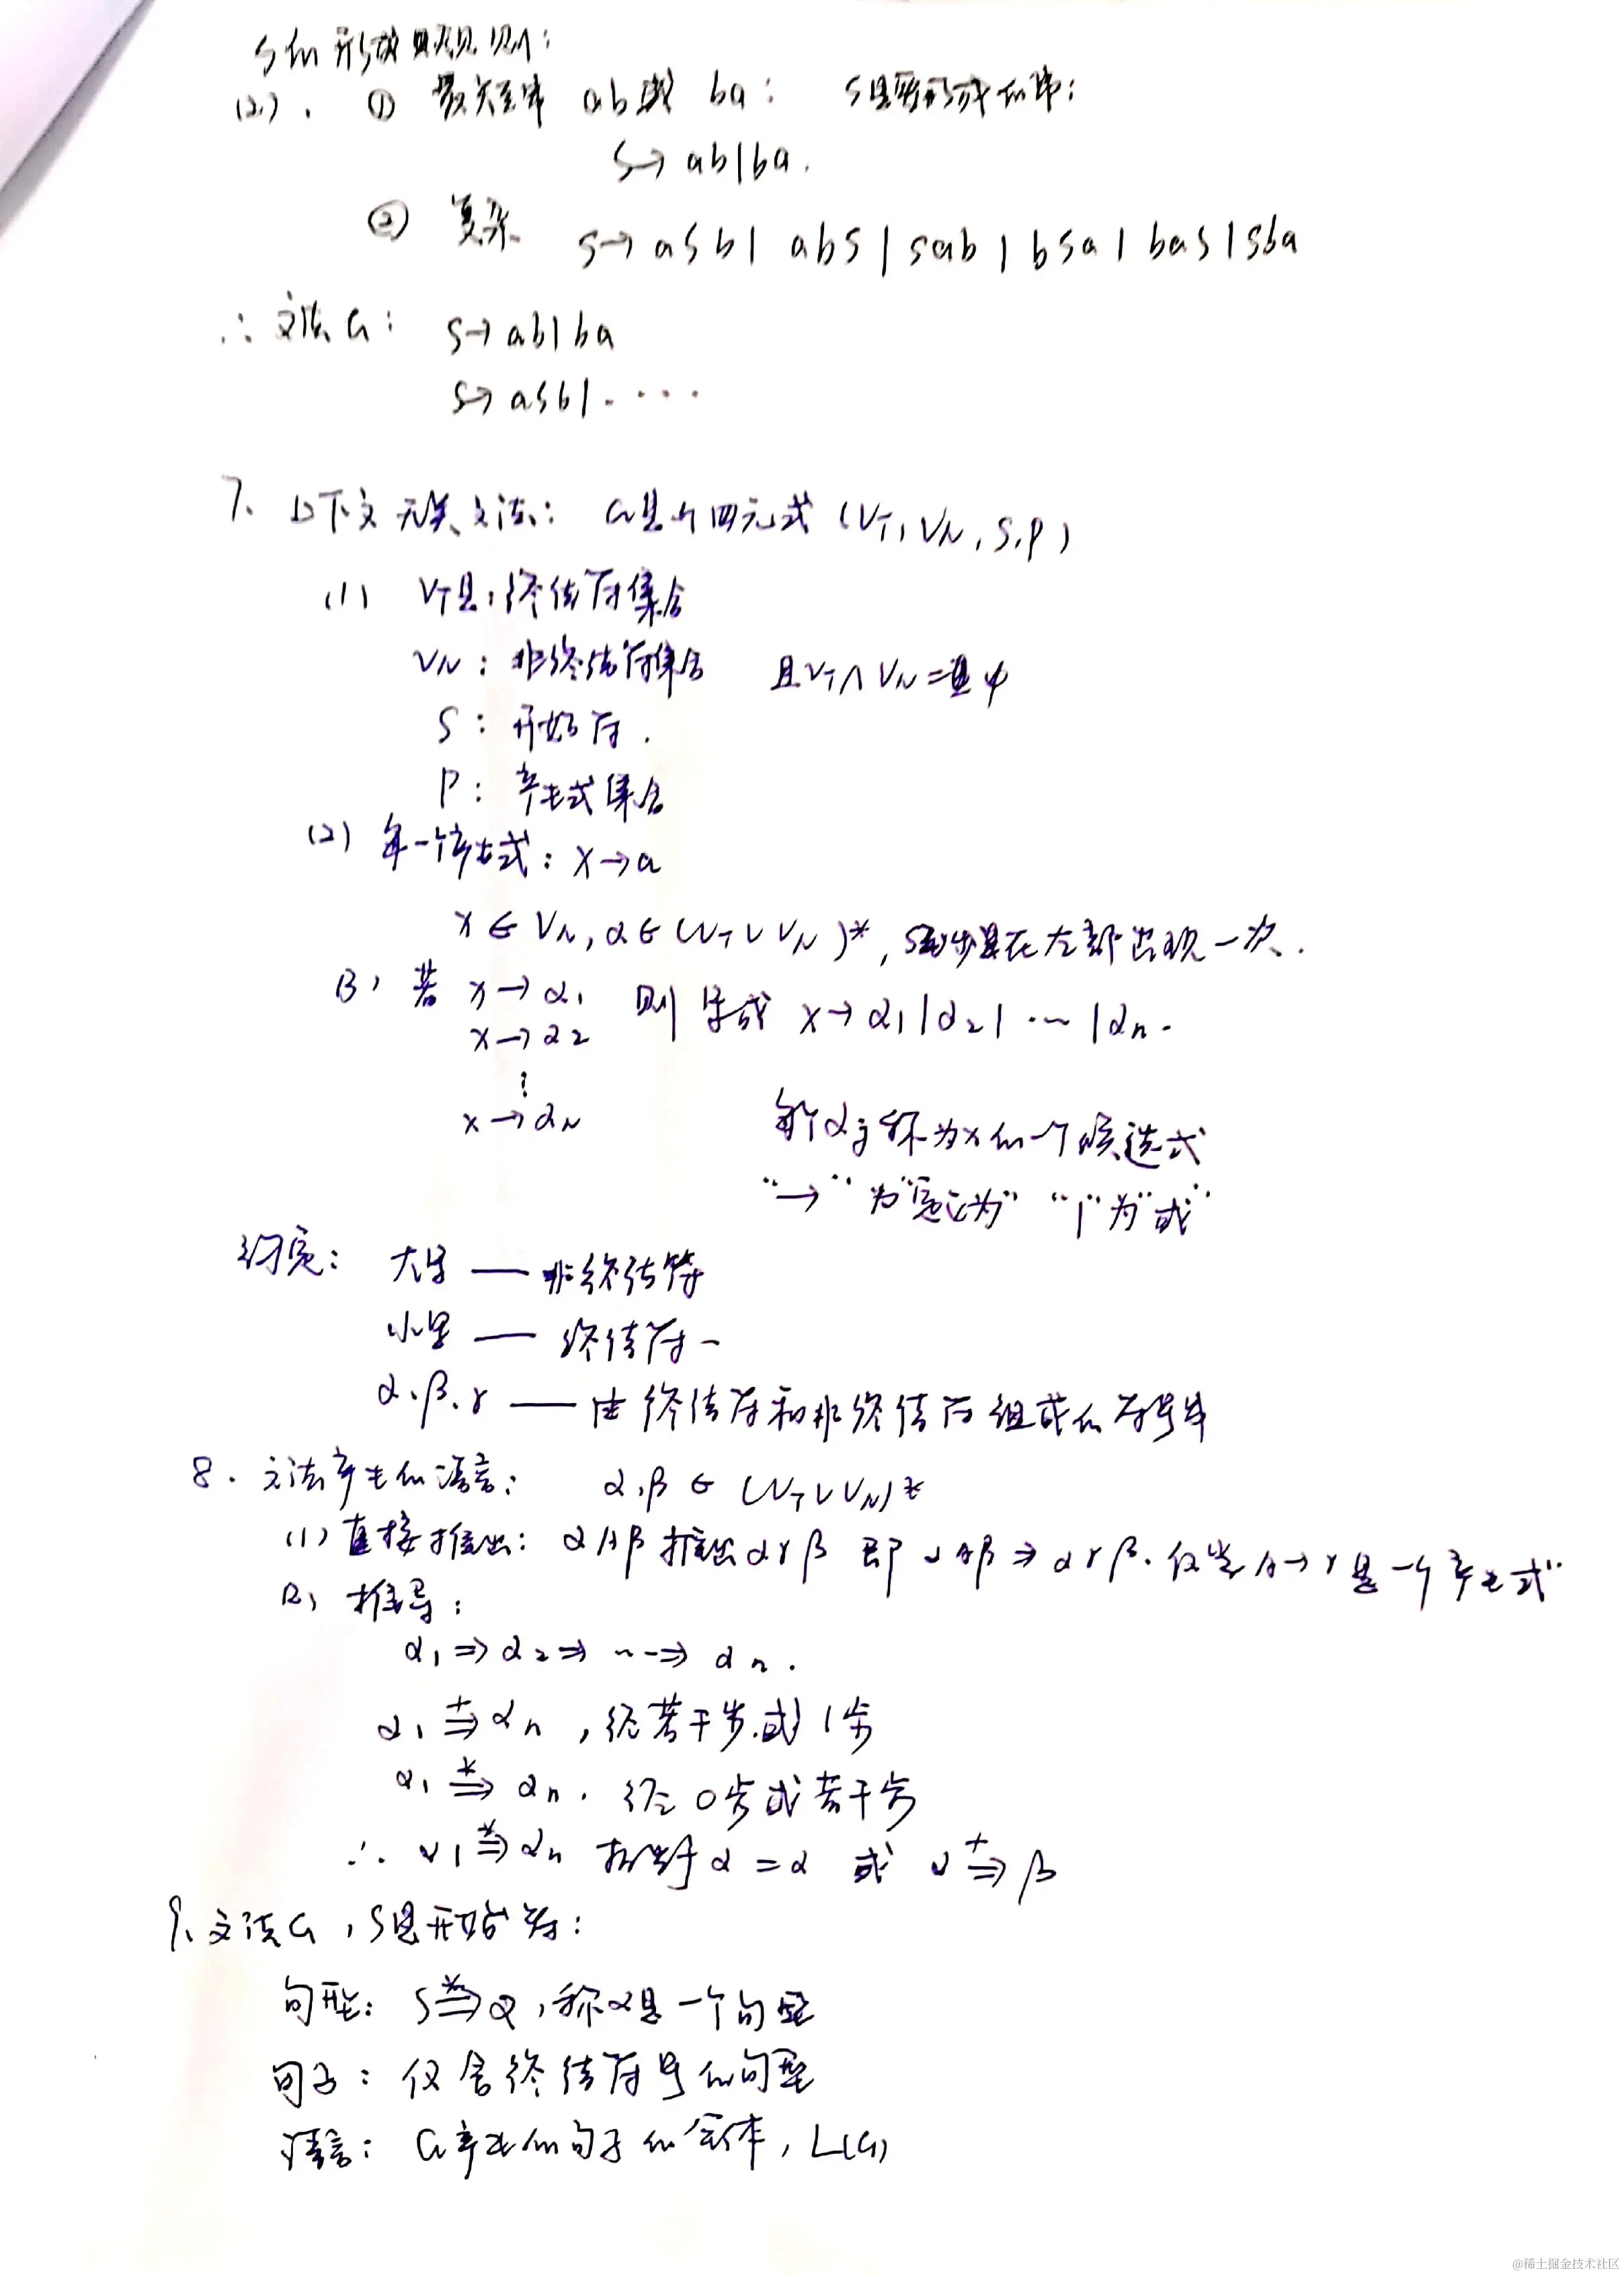 S的形成规则:
(2). ① 最短串 ab或 ba: S是所形成的串:
S→ab|ba.
② 复杂 S→aSb| abS | Sab | bSa | baS | Sba
∴文法G: S→ab|ba
S→aSb|.....
7、上下文无关文法: G是个四元式 (VT, VN, S, P)
(1) VT是:终结符集合
VN: 非终结符集合 且VT∩VN=是φ
S: 开始符.
P: 产生式集合
(2) 每一个产生式: X→α
X∈VN, α∈(VT∪VN)*, S至少在左部出现一次.
(3) 若 X→α1 则写成 X→α1|α2|…|αn.
X→α2
⋮
X→αn
每个αj称为X的一个候选式
“→”为“定义为” “|”为“或”
约定: 大写——非终结符
小写——终结符
α、β、γ——由终结符和非终结符组成的符号串
8. 文法产生的语言: α,β∈(VT∪VN)*
(1) 直接推出: αAβ推出αγβ 即αAβ⇒αγβ. 仅当A→γ是一个产生式
(2) 推导:
α1⇒α2⇒…⇒αn.
α1 ⇒+ αn, 经若干步或1步
α1 ⇒* αn. 经0步或若干步
∴ α1 ⇒* αn 相当于α=α 或 α ⇒+ β
9、文法G, S是开始符:
句型: S ⇒* α, 称α是一个句型
句子: 仅含终结符号的句型
语言: G产生的句子的全体, L(G)
@稀土掘金技术社区